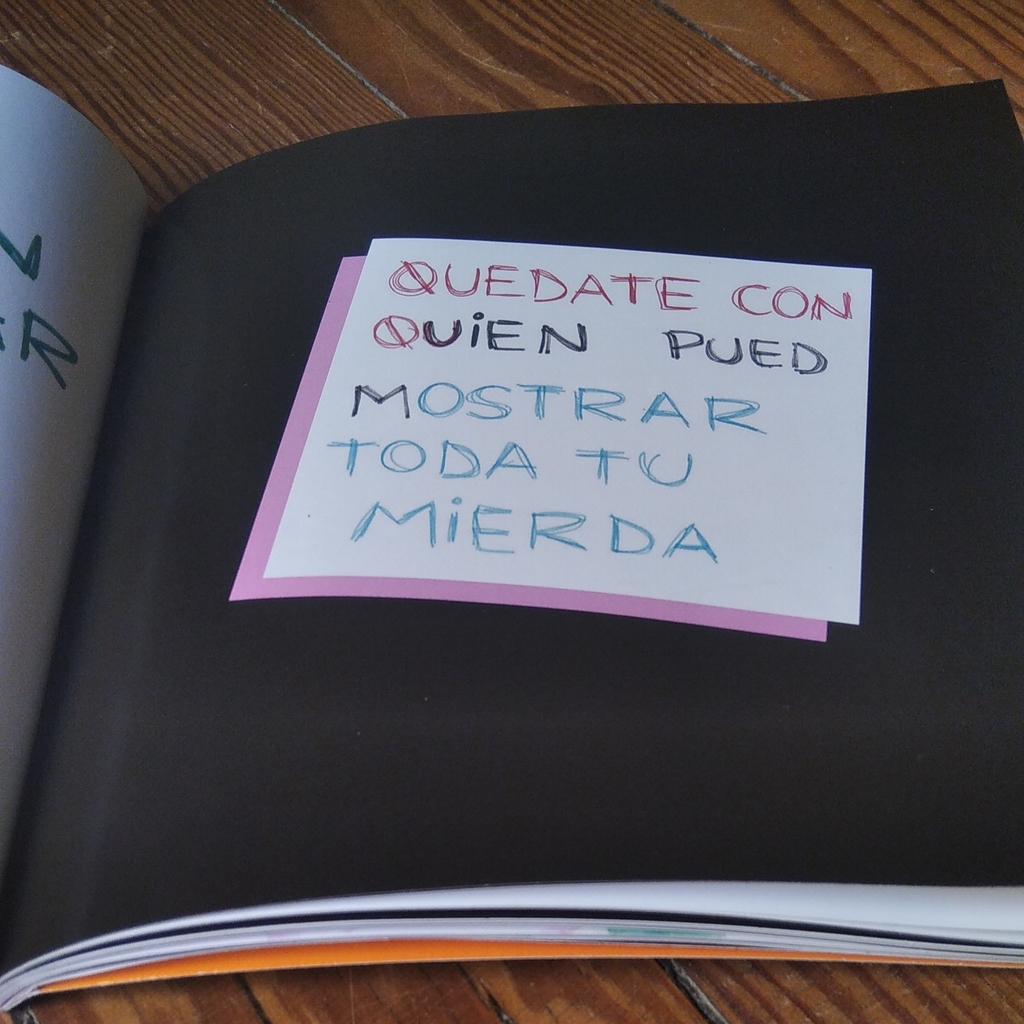 N
iR
QUEDATE CON
QUiEN PUED
MOSTRAR
TODA TU
MiERDA